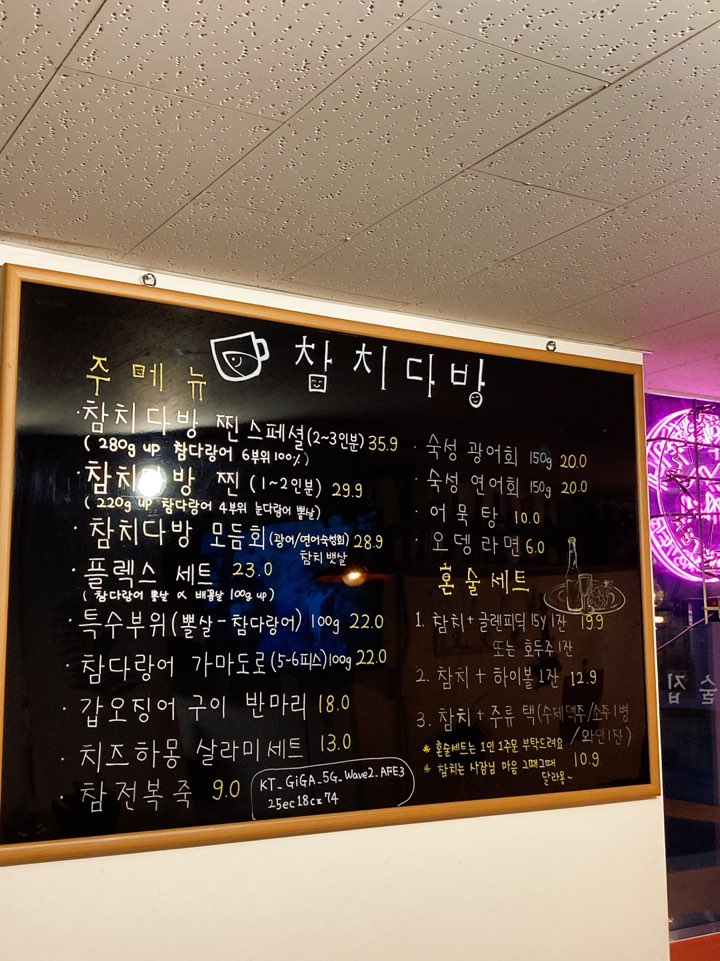 참치다방
주메뉴
· 참치다방 찐 스페셜 (2~3인분) 35.9
( 280g up 참다랑어 6부위 100% )
· 참치다방 찐 (1~2인분) 29.9
( 220g up 참다랑어 4부위 눈다랑어 뽈살)
· 참치다방 모듬회 (광어/연어숙성회) 28.9
참치뱃살
· 플렉스 세트 23.0
( 참다랑어 뽈살 & 배꼽살 100g up )
· 특수부위 (뽈살-참다랑어) 100g 22.0
· 참다랑어 가마도로 (5~6피스) 100g 22.0
· 갑오징어 구이 반마리 18.0
· 치즈하몽 살라미세트 13.0
· 참전복죽 9.0
KT_GiGA_5G_Wave2_AFE3
25ec18cx74
· 숙성 광어회 150g 20.0
· 숙성 연어회 150g 20.0
· 어묵탕 10.0
· 오뎅라면 6.0
혼술세트
1. 참치 + 글렌피딕 15y 1잔 19.9
또는 호두주 1잔
2. 참치 + 하이볼 1잔 12.9
3. 참치 + 주류 택 (수제맥주/소주1병
/와인1잔)
10.9
* 혼술세트는 1인 1주문 부탁드려요
* 참치는 사장님 마음 그때그때
달라용~
술집